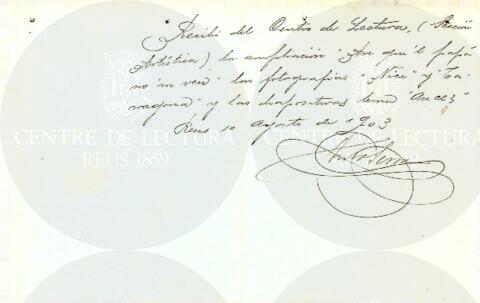 Recibí del Centro de Lectura, (Sección
Artística), la ampliación "Ara que'l papá
no'm veu" las fotografias "Nice" y "Ta-
rragona" y las diapositivas lema
Reus 10 Agosto de 1903
CENTRE DE LECTURA
REUS 1859
CENTRE DE LECTURA
REUS 1859